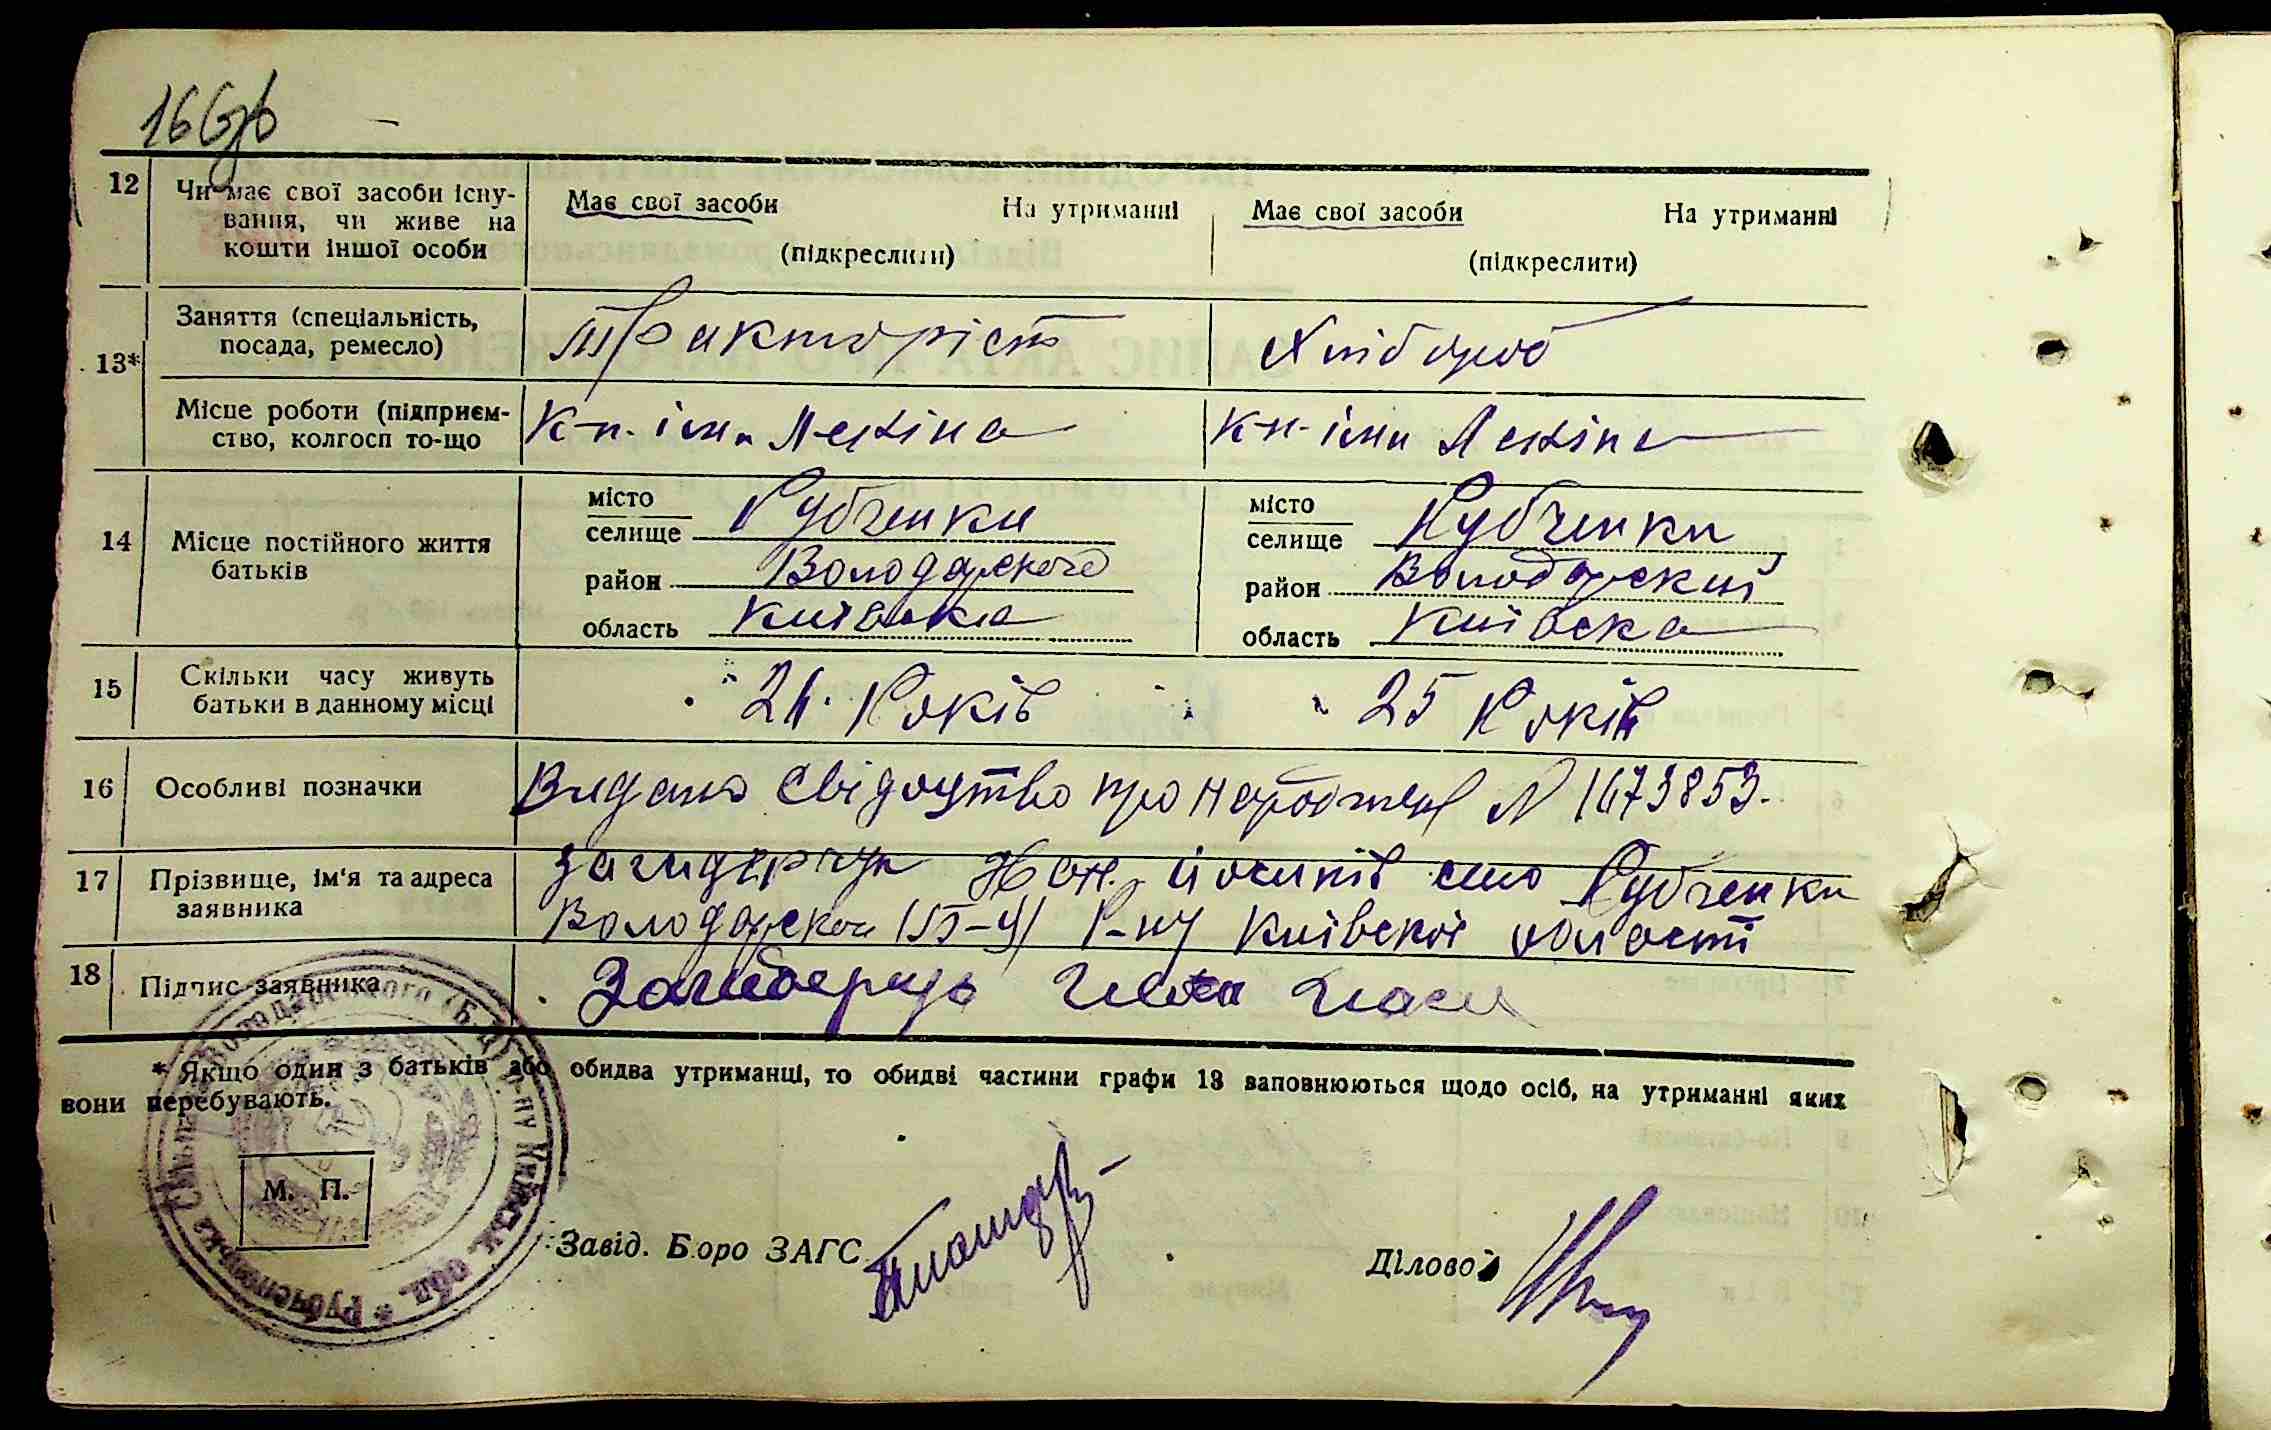 16 Зв
12 Чи має свої засоби існу- Має свої засоби На утриманні Має свої засоби На утриманні
вання, чи живе на
кошти іншої особи (підкреслити) (підкреслити)
13* Заняття (спеціальність, Тракторіст Хлібороб
посада, ремесло)
Місце роботи (підприєм- К-п. імн Леніна К-п- імн Леніна
ство, колгосп то-що
14 Місце постійного життя батьків
місто Рубченки місто Рубченки
селище селище
район Володарского район Володарский
область Київска область Київска
15 Скільки часу живуть 24. Років 25 Років
батьки в данному місці
16 Особливі позначки Видано свідоцтво про народжен N 1673853.
17 Прізвище, ім'я та адреса Йосипів село Рубченки
заявника Володарског (Б-Ц) Р-ну Київскої області
18 Підпис заявника
* Якщо один з батьків або обидва утриманці, то обидві частини графи 13 заповнюються щодо осіб, на утриманні яких
вони перебувають.
М. П.
Рубченська Сільрада Володарського (Б.-Ц.) р-ну Київськ. обл. *
Завід. Бюро ЗАГС
Діловод